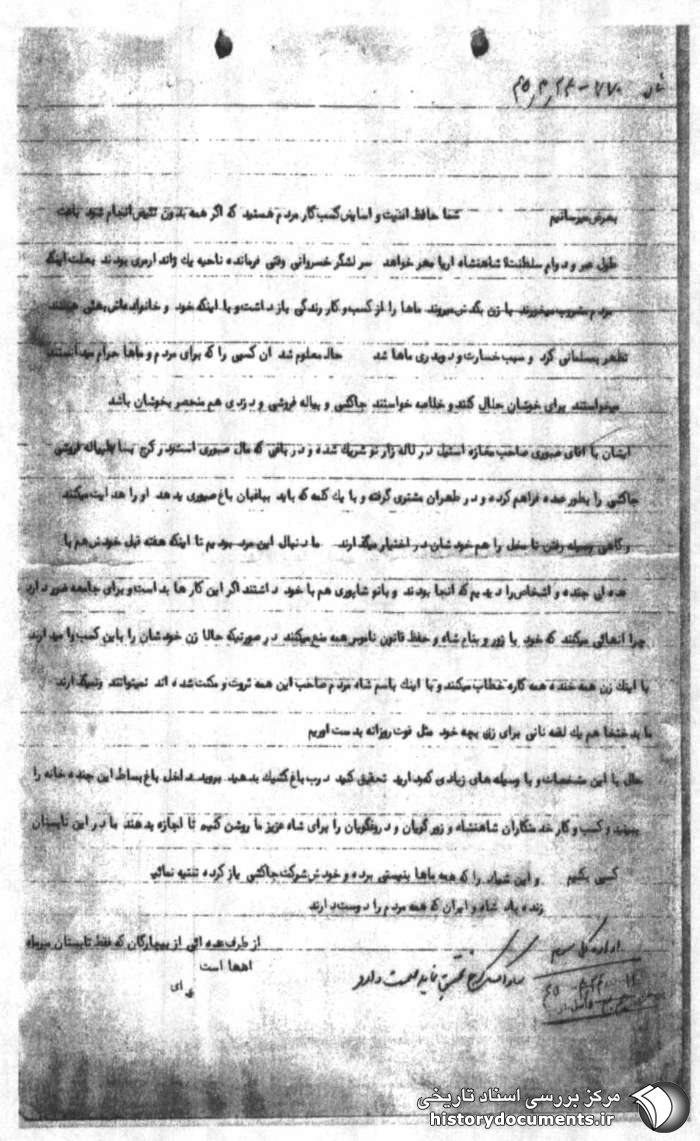 بعرض میرسانیم شما حافظ امنیت و اسایش کسب کار مردم هستید که اگر همه بدون تبعیض انجام شود باعث
طول عمر و دوام سلطنت شاهنشاه اریا مهر خواهد سرلشگر خسروانی وقتی فرمانده ناحیه یک ژاندارمری بودند بعلت اینکه
مردم مشروب میخورند با زن بگردش میروند ماها را از کسب و کار زندگی باز داشت و با اینکه خود و خانواده اش بهائی هستند
تظاهر بمسلمانی کرد و سبب خسارت و دربدری ماها شد حال معلوم شد ان کسبی را که برای مردم و ماها حرام میدانستند
میخواستند برای خودشان حلال کنند و خلاصه خواستند جاکشی و پیاله فروشی و دزدی هم منحصر بخودشان باشد
ایشان با اقای صبوری صاحب مغازه استیل در لاله زار نو شریک شده و در باغی که مال صبوری است در کرج بساط پیاله فروشی
جاکشی را بطور عمده فراهم کرده و در طهران مشتری گرفته و با یک کلمه که باید بباغبان باغ صبوری بدهد او را هدایت میکنند
و گاهی وسیله رفتن تا محل را هم خودشان در اختیار میگذارند ما دنبال این مرد بودیم تا اینکه هفته قبل خودش هم با
عده ای جنده و اشخاص را دیدیم که انجا بودند و بانو شاپوری هم با خود داشتند اگر این کار ها بد است و برای جامعه ضرر دارد
چرا انهائی میکنند که خود با زور و بنام شاه و حفظ قانون ناموس همه منع میکنند در صورتیکه حالا زن خودشان را باین کسب وا میدارند
با اینکه زن همه جنده همه کاره خطاب میکنند و با اینکه باسم شاه مردم صاحب این همه ثروت و مکنت شده اند نمیتوانند ونمیگذارند
ما بدبختها هم یک لقمه نانی برای زن بچه خود مثل قوت روزانه بدست اوریم
حال با این مشخصات و با وسیله های زیادی که دارید تحقیق کنید درب باغ کشیک بدهید بروید داخل باغ بساط این جنده خانه را
ببینید و کسب و کار خدمتکاران شاهنشاه و زور گویان و دروغگویان را برای شاه عزیز ما روشن کنیم تا اجازه بدهند ما در این تابستان
کسبی بکنیم و این شیاد را که همه ماها به نیستی برده و خودش شرکت جاکشی باز کرده تنبیه نمائیم
زنده باد شاه و ایران که همه مردم را دوست دارند
از طرف عده ائی از بیچارگان که فقط تابستان مربوط
اهها است
اداره کل سوم
مرکز بررسی اسناد تاریخی
historydocuments.ir